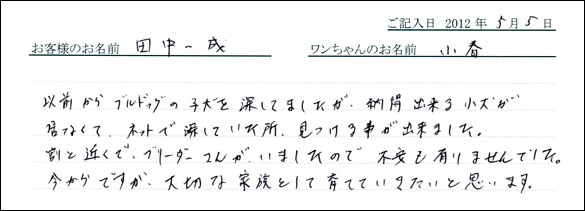 ご記入日 2012年5月5日
お客様のお名前 田中一成 ワンちゃんのお名前 小春
以前からブルドッグの子犬を探してましたが、納得出来る小犬が
居なくて、ネットで探していた所、見つける事が出来ました。
割と近くで、ブリーダーさんが、いましたので不安も有りませんでした。
今からですが、大切な家族として育てていきたいと思います。